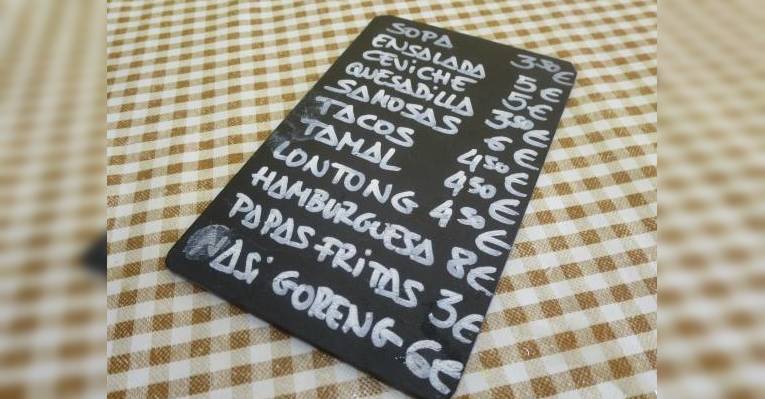 SOPA 3⁵⁰€
ENSALADA 5€
CEVICHE 5€
QUESADILLA 3⁵⁰€
SAMOSAS 6€
TACOS 4⁵⁰€
TAMAL 4⁵⁰€
LONTONG 4⁵⁰€
HAMBURGUESA 8€
PAPAS FRITAS 3€
NASI GORENG 6€